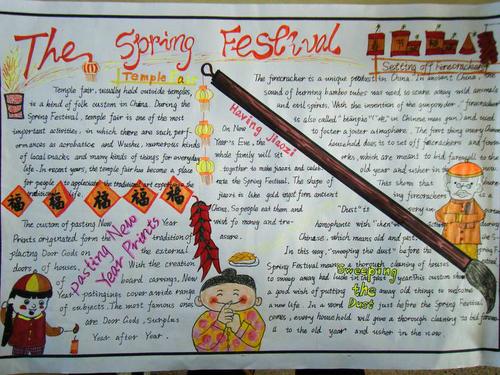 The Spring Festival
Temple Fair
Temple fair, usually held outside temples,
is a kind of folk custom in China. During the
Spring Festival, temple fair is one of the most
important activities, in which there are such perf-
ormances as acrobatics and Wushu, numerous kinds
of local snacks and many kinds of things for everyday
life. In recent years, the temple fair has become a place
for people to appreciate the traditional art experience the
traditional life.
福 福 福 福 福
Pasting New
Year Prints
The custom of pasting New Year
Prints originated from the tradition of
placing Door Gods on the external
doors of houses. With the creation
of board carvings, New
Year paintings cover a wide range
of subjects. The most famous ones
are Door Gods, Surplus
Year after Year.
Having jiaozi
On New
Year's Eve, the
whole family will sit
together to make jiaozi and celeb-
rate the Spring Festival. The shape of
jiaozi is like gold ingot from ancient
China. So people eat them and
wish for money and tre-
asure.
Setting off Firecrackers
The firecracker is a unique product in China. In ancient China, the
sound of burning bamboo tubes was used to scare away wild animals
and evil spirits. With the invention of the gunpowder, "firecracker"
is also called
to foster a joyous atmosphere. The first thing every Chinese
household does is to set off firecrackers and
which are meant to bid farewell to the
old year and usher in the
This shows that
Sweeping
the
Dust
"Dust" is
homophonic with "chen"
Chinese, which means old and past.
In this way, "sweeping the dust" before the
Spring Festival means a thorough cleaning of houses
to sweep away bad luck in the past year. This custom shows
a good wish of putting away old things to welcome
a new life. In a word just before the Spring Festival
comes, every household will give a thorough cleaning to bid farewell
to the old year and usher in the new.